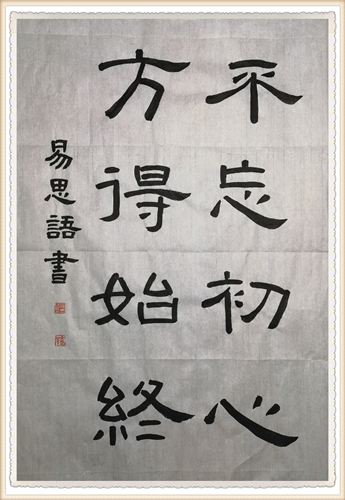 不忘初心
方得始終
易思語書